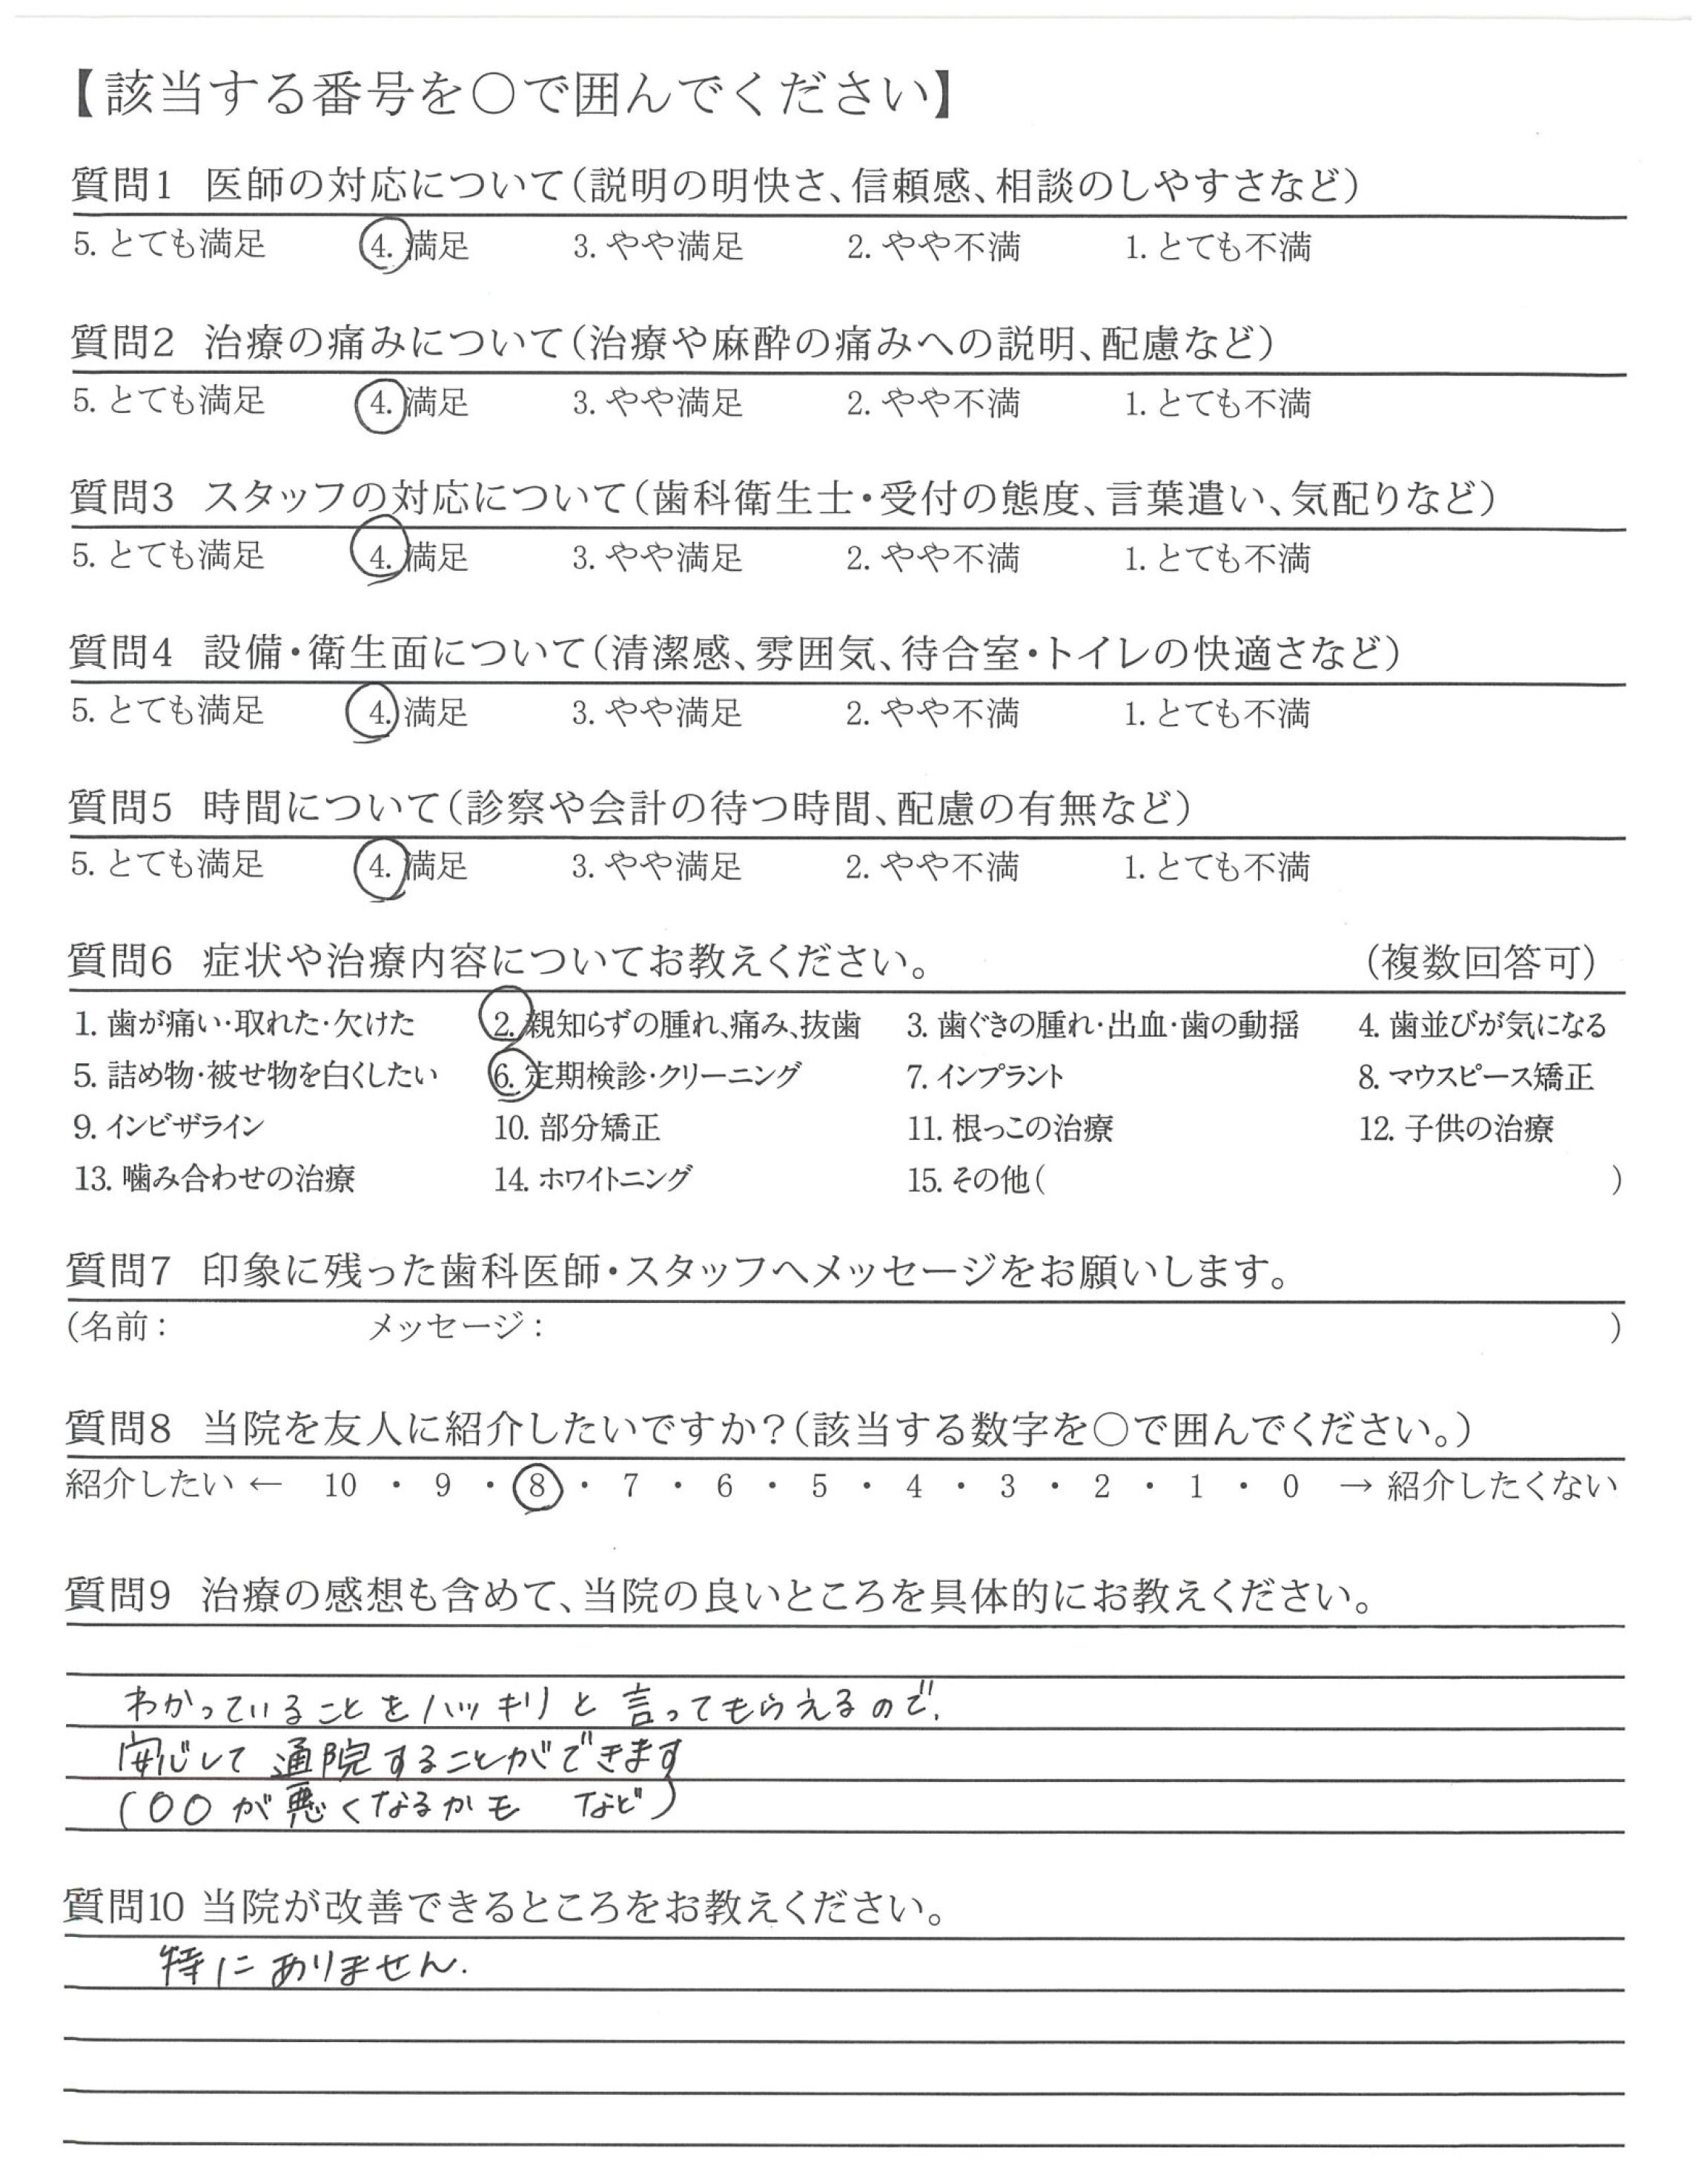 【該当する番号を○で囲んでください】
質問1 医師の対応について(説明の明快さ、信頼感、相談のしやすさなど)
5. とても満足 4. 満足 3. やや満足 2. やや不満 1. とても不満
質問2 治療の痛みについて(治療や麻酔の痛みへの説明、配慮など)
5. とても満足 4. 満足 3. やや満足 2. やや不満 1. とても不満
質問3 スタッフの対応について(歯科衛生士・受付の態度、言葉遣い、気配りなど)
5. とても満足 4. 満足 3. やや満足 2. やや不満 1. とても不満
質問4 設備・衛生面について(清潔感、雰囲気、待合室・トイレの快適さなど)
5. とても満足 4. 満足 3. やや満足 2. やや不満 1. とても不満
質問5 時間について(診察や会計の待つ時間、配慮の有無など)
5. とても満足 4. 満足 3. やや満足 2. やや不満 1. とても不満
質問6 症状や治療内容についてお教えください。 (複数回答可)
1. 歯が痛い・取れた・欠けた 2. 親知らずの腫れ、痛み、抜歯 3. 歯ぐきの腫れ・出血・歯の動揺 4. 歯並びが気になる
5. 詰め物・被せ物を白くしたい 6. 定期検診・クリーニング 7. インプラント 8. マウスピース矯正
9. インビザライン 10. 部分矯正 11. 根っこの治療 12. 子供の治療
13. 噛み合わせの治療 14. ホワイトニング 15. その他( )
質問7 印象に残った歯科医師・スタッフへメッセージをお願いします。
(名前: メッセージ: )
質問8 当院を友人に紹介したいですか?(該当する数字を○で囲んでください。)
紹介したい ← 10 ・ 9 ・ 8 ・ 7 ・ 6 ・ 5 ・ 4 ・ 3 ・ 2 ・ 1 ・ 0 → 紹介したくない
質問9 治療の感想も含めて、当院の良いところを具体的にお教えください。
わかっていることをハッキリと言ってもらえるので、
安心して通院することができます
(○○が悪くなるかも など)
質問10 当院が改善できるところをお教えください。
特にありません.